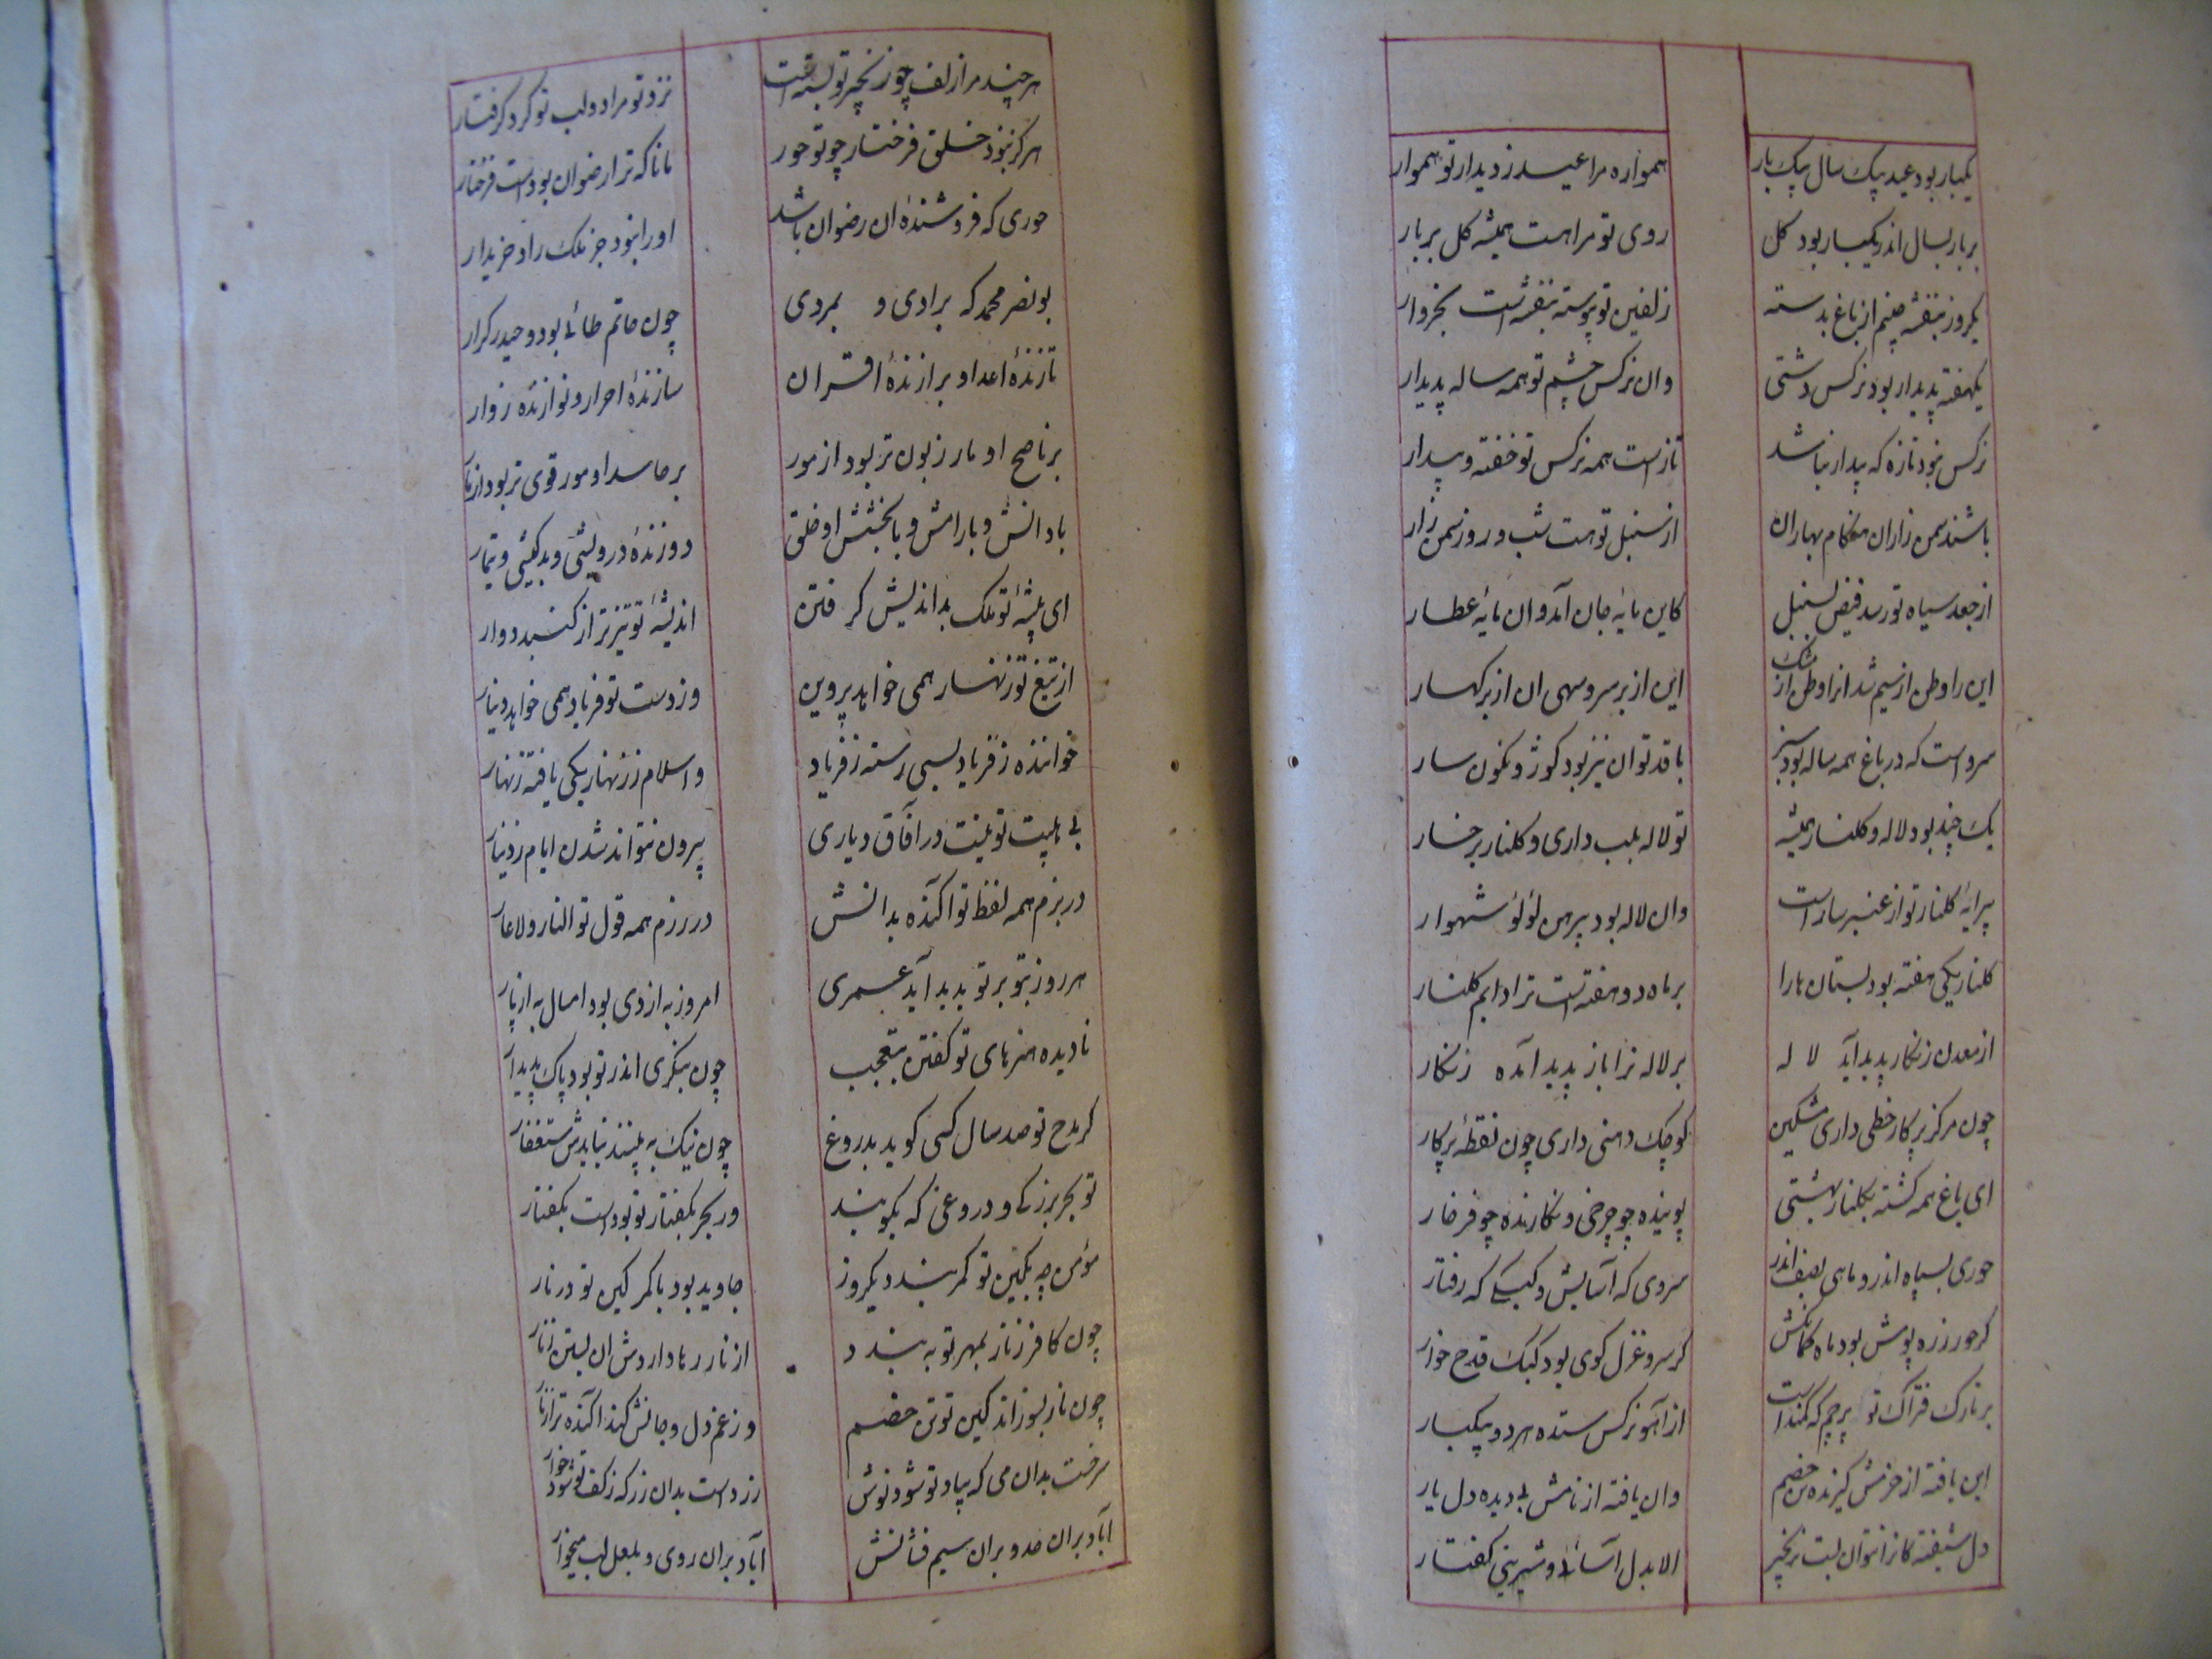 یکبار بود عید بیک سال بیک بار همواره مرا عید ز دیدار تو هموار
بر بار بسال اندر یکبار بود کل روی تو مرا هست همیشه کل بر بار
یکروز بنفشه چنم از باغ بدسته زلفین تو پیوسته بنفشه است بخروار
یکهفته پدیدار بود نرکس دشتی وان نرکس چشم تو همه ساله پدیدار
نرکس نبود تازه که بیدار نباشد تازه است همه نرکس تو خفته و بیدار
باشند سمن زاران هنکام بهاران از سنبل تو هست شب و روز سمن زار
از جعد سیاه تو رسد فیض بسنبل کاین مایه جان آمد و ان مایه عطار
این را وطن از سیم شد انرا وطن از مشک این از بر سرو سهی ان از بر کهسار
سرو است که در باغ همه ساله بود سبز با قد تو ان نیز بود کوژ و نکون سار
یک چند بود لاله و کلنار همیشه تو لاله بلب داری و کلنار برخسار
پیرایه کلنار تو از عنبر سار است وان لاله بود پیرهن لؤلؤ شهوار
کلنار یکی هفته بود بستان ها را بر ماه دو هفته است ترا دایم کلنار
از معدن زنکار پدید آید لا له بر لاله ترا باز پدید آمده زنکار
چون مرکز پرکار خطی داری مشکین کوچک دهنی داری چون نقطه پرکار
ای باغ همه کشته بکلنار بهشتی پوینده چو چرخی و نکارنده چو فرخار
حوری بسپاه اندر و ماهی بصف اندر سروی که آسایش و کبکی که رفتار
کر حور زره پوش بود ماه کمانکش کر سرو غزل کوی بود کبک قدح خوار
بر نازک فتراک تو پرچم که کمند است از آهو نرکس ستده هر دو بیکبار
این یافته از حزمش کیرنده تن خصم وان یافته از نامش بی دیده دل یار
دل شیفته کانرا نتوان بست بزنجیر الا بدل آسائی و شیرینی کفتار
هر چند مرا زلف چو زنجیر تو بسته است نزد تو مرا دو لب تو کرد کرفتار
هرکز نبود خلق فرختار چو تو حور مانا که ترا رضوان بود است فرختار
حوری که فروشنده ان رضوان باشد او را نبود جز ملک راد خریدار
بونصر محمد که برادی و بمردی چون حاتم طائی بود و حیدر کرار
تازنده اعدا و برازنده اقران سازنده احرار و نوازنده زوار
بر ناصح او مار زبون تر بود از مور بر حاسد او مور قوی تر بود از مار
با دانش و با رامش و با بخشش او خلق دوزنده درویشی و بد کیشی و تیمار
ای پیشه تو ملک بداندیش کرفتن اندیشه تو تیزتر از کنبد دوار
از تیغ تو زنهار همی خواهد پروین وز دست تو فریاد همی خواهد دینار
خواننده ز فریاد بسی رسته ز فریاد واسلام ز زنهار یکی یافته زنهار
بی هیبت تو نیست در آفاق دیاری بیرون نتواند شدن ایام ز دینار
در بزم همه لفظ تو آکنده بدانش در رزم همه قول تو النار و لا عار
هر روز بتو بر تو پدید آید عمری امروز به از دی بود امسال به از پار
نادیده هنرهای تو کفتن بتعجب چون بنکری اندر تو بود پاک پدیدار
کر مدح تو صد سال کسی کوید بدروغ چون نیک به بینند نبایدش ستغفار
تو بحر بزرکی و دروغی که بکویند ور بحر بکفتار تو بود است بکفتار
مؤمن چه بکین تو کمر بندد یکروز جاوید بود با کمر کین تو در نار
چون کافر زنار بمهر تو به بندد از نار رها داردش ان بستن زنار
چون نار بسوزاند کین تو تن خصم وز غم دل و جانش کند آکنده تر از نار
سرخست بدان می که بیاد تو شود نوش زرد است بدان زر که ز کف تو شود خوار
آباد بران صد و بران سیم فشانش آباد بران روی و بلعل لب میخوار